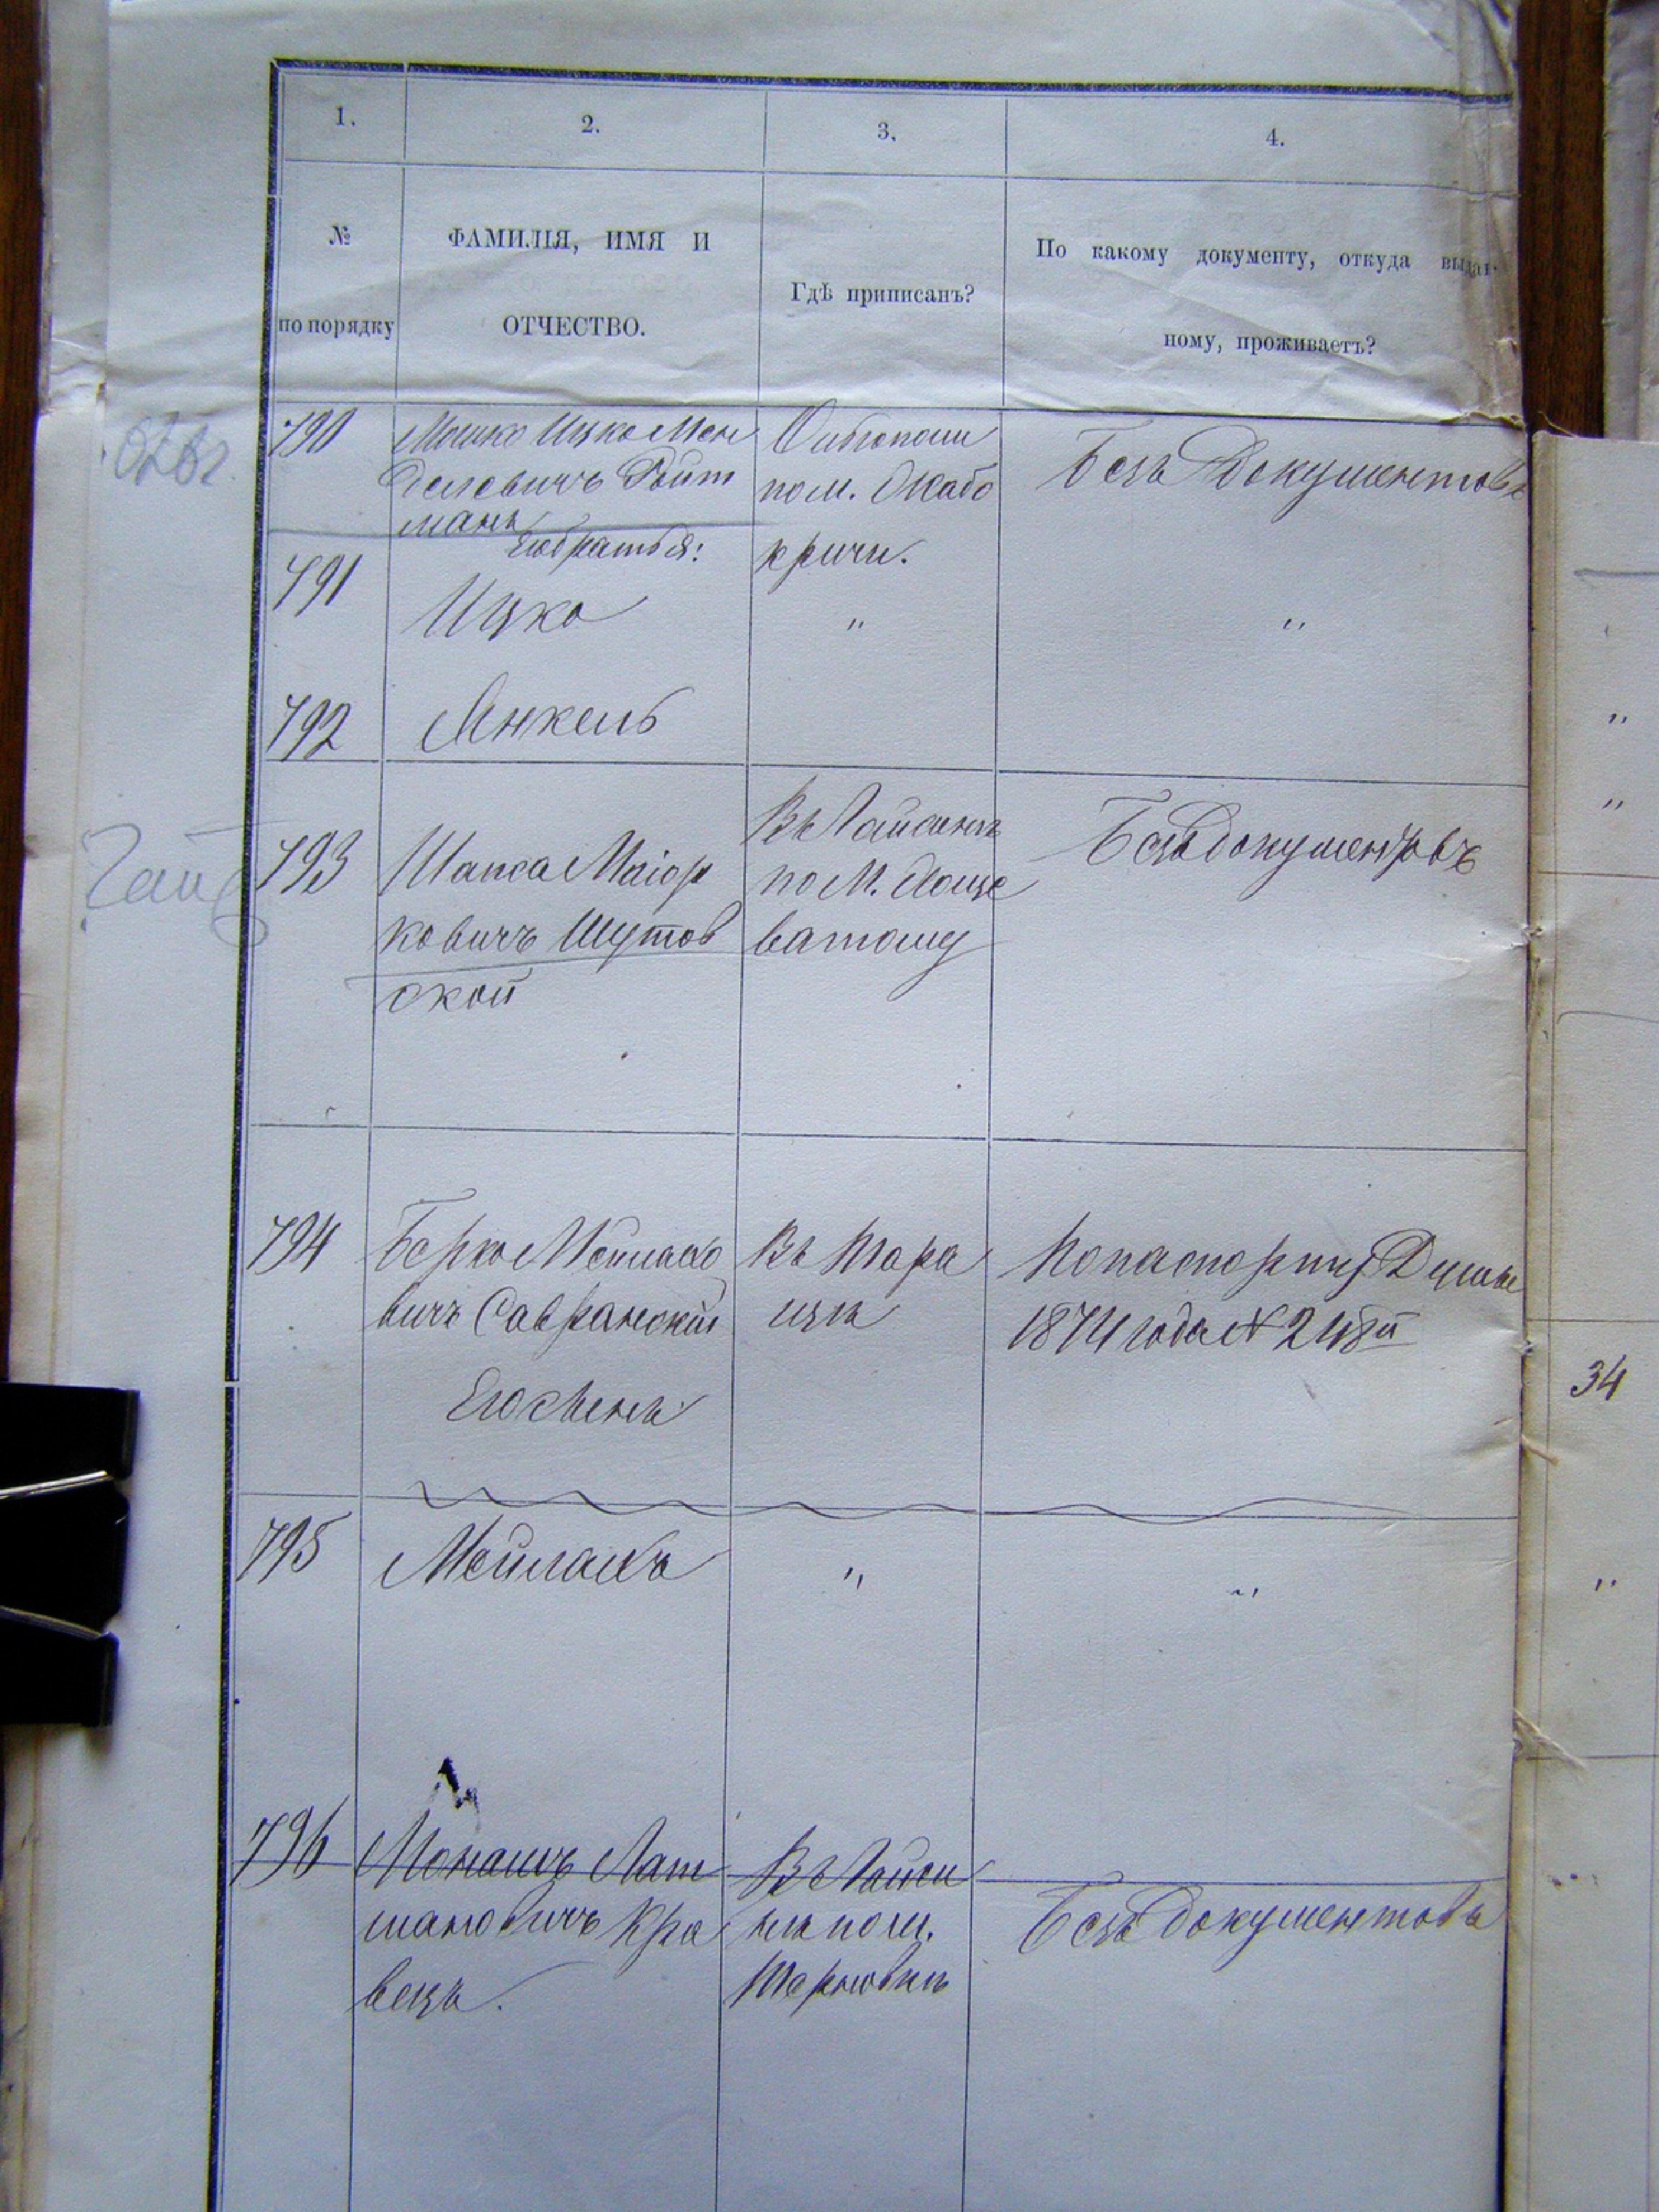 1. 2. 3. 4.
№ по порядку
ФАМИЛІЯ, ИМЯ И
ОТЧЕСТВО.
Гдѣ приписанъ?
По какому документу, откуда выдан-
ному, проживаетъ?
790 Мошко Ицко Мен
делевичъ Ройт
манъ
пом. Жабо
кричи.
Безъ документовъ
Его братья:
791 Ицко " "
792 Янкель
793 Шапса Маіор
ковичъ Шутов
ской
Въ Гайсинѣ
по М. Хоще
ватому
Безъ документовъ
794 Берко Мейлахо
вичъ Савранскій
Въ Тара
щѣ
По паспорту Думы
1874 года №
Его сынъ
795 Мейлахъ " "
796 Монашъ
мановичъ Кра
вецъ.
Въ Гайси
нѣ по м.
Терновкѣ
Безъ документовъ
"
"
34
"